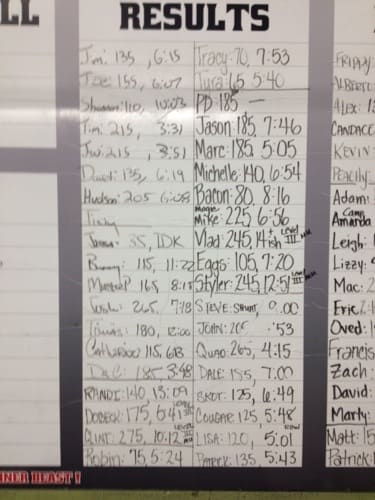 LL
RESULTS
Jim: 135, 6:15
Joe: 155, 6:07
Shannon: 110, 10:03
Tim: 215, 3:31
Jw: 215, 3:51
David: 135, 6:19
Hudson: 205 6:08
35, IDK
Benny: 115, 11:22
165, 8:15
265, 7:18
180,
Catherine 115, 6:13
185 3:48
RANDI: 140, 13:09
DOBECK: 175, 5:41 LEVEL III
CLINT: 275, 10:12 LEVEL III
Robin: 75, 5:24
Tracy: 70, 7:53
Tura: 65 5:40
PD 185 —
Jason: 185, 7:46
Marc: 185, 5:05
Michelle: 140, 6:54
Bacon: 80, 8:16
Mike: 225, 6:56
Vlad: 245, 14ish Level III
Eggs: 105, 7:20
Styler: 245, 12:51 Level III
STEVE: 0.00
JOHN: 205 :53
QUAD: 265, 4:15
DALE: 195, 7:00
BROT: 125, 6:49
COUGAR: 125, 5:48
LISA: 120, 5:01
PATRICK: 135, 5:43
FRIPPY
ALBERT
ALEX: 13
CANDACE
KEVIN:
PEACHY
Adam:
Camp
Amanda
Leigh:
Lizzy:
Mac: 2
Eric: 2
Oved:
Francis
Zach:
David:
Marty:
Matt: 15
Patrick:
INNER BEAST!